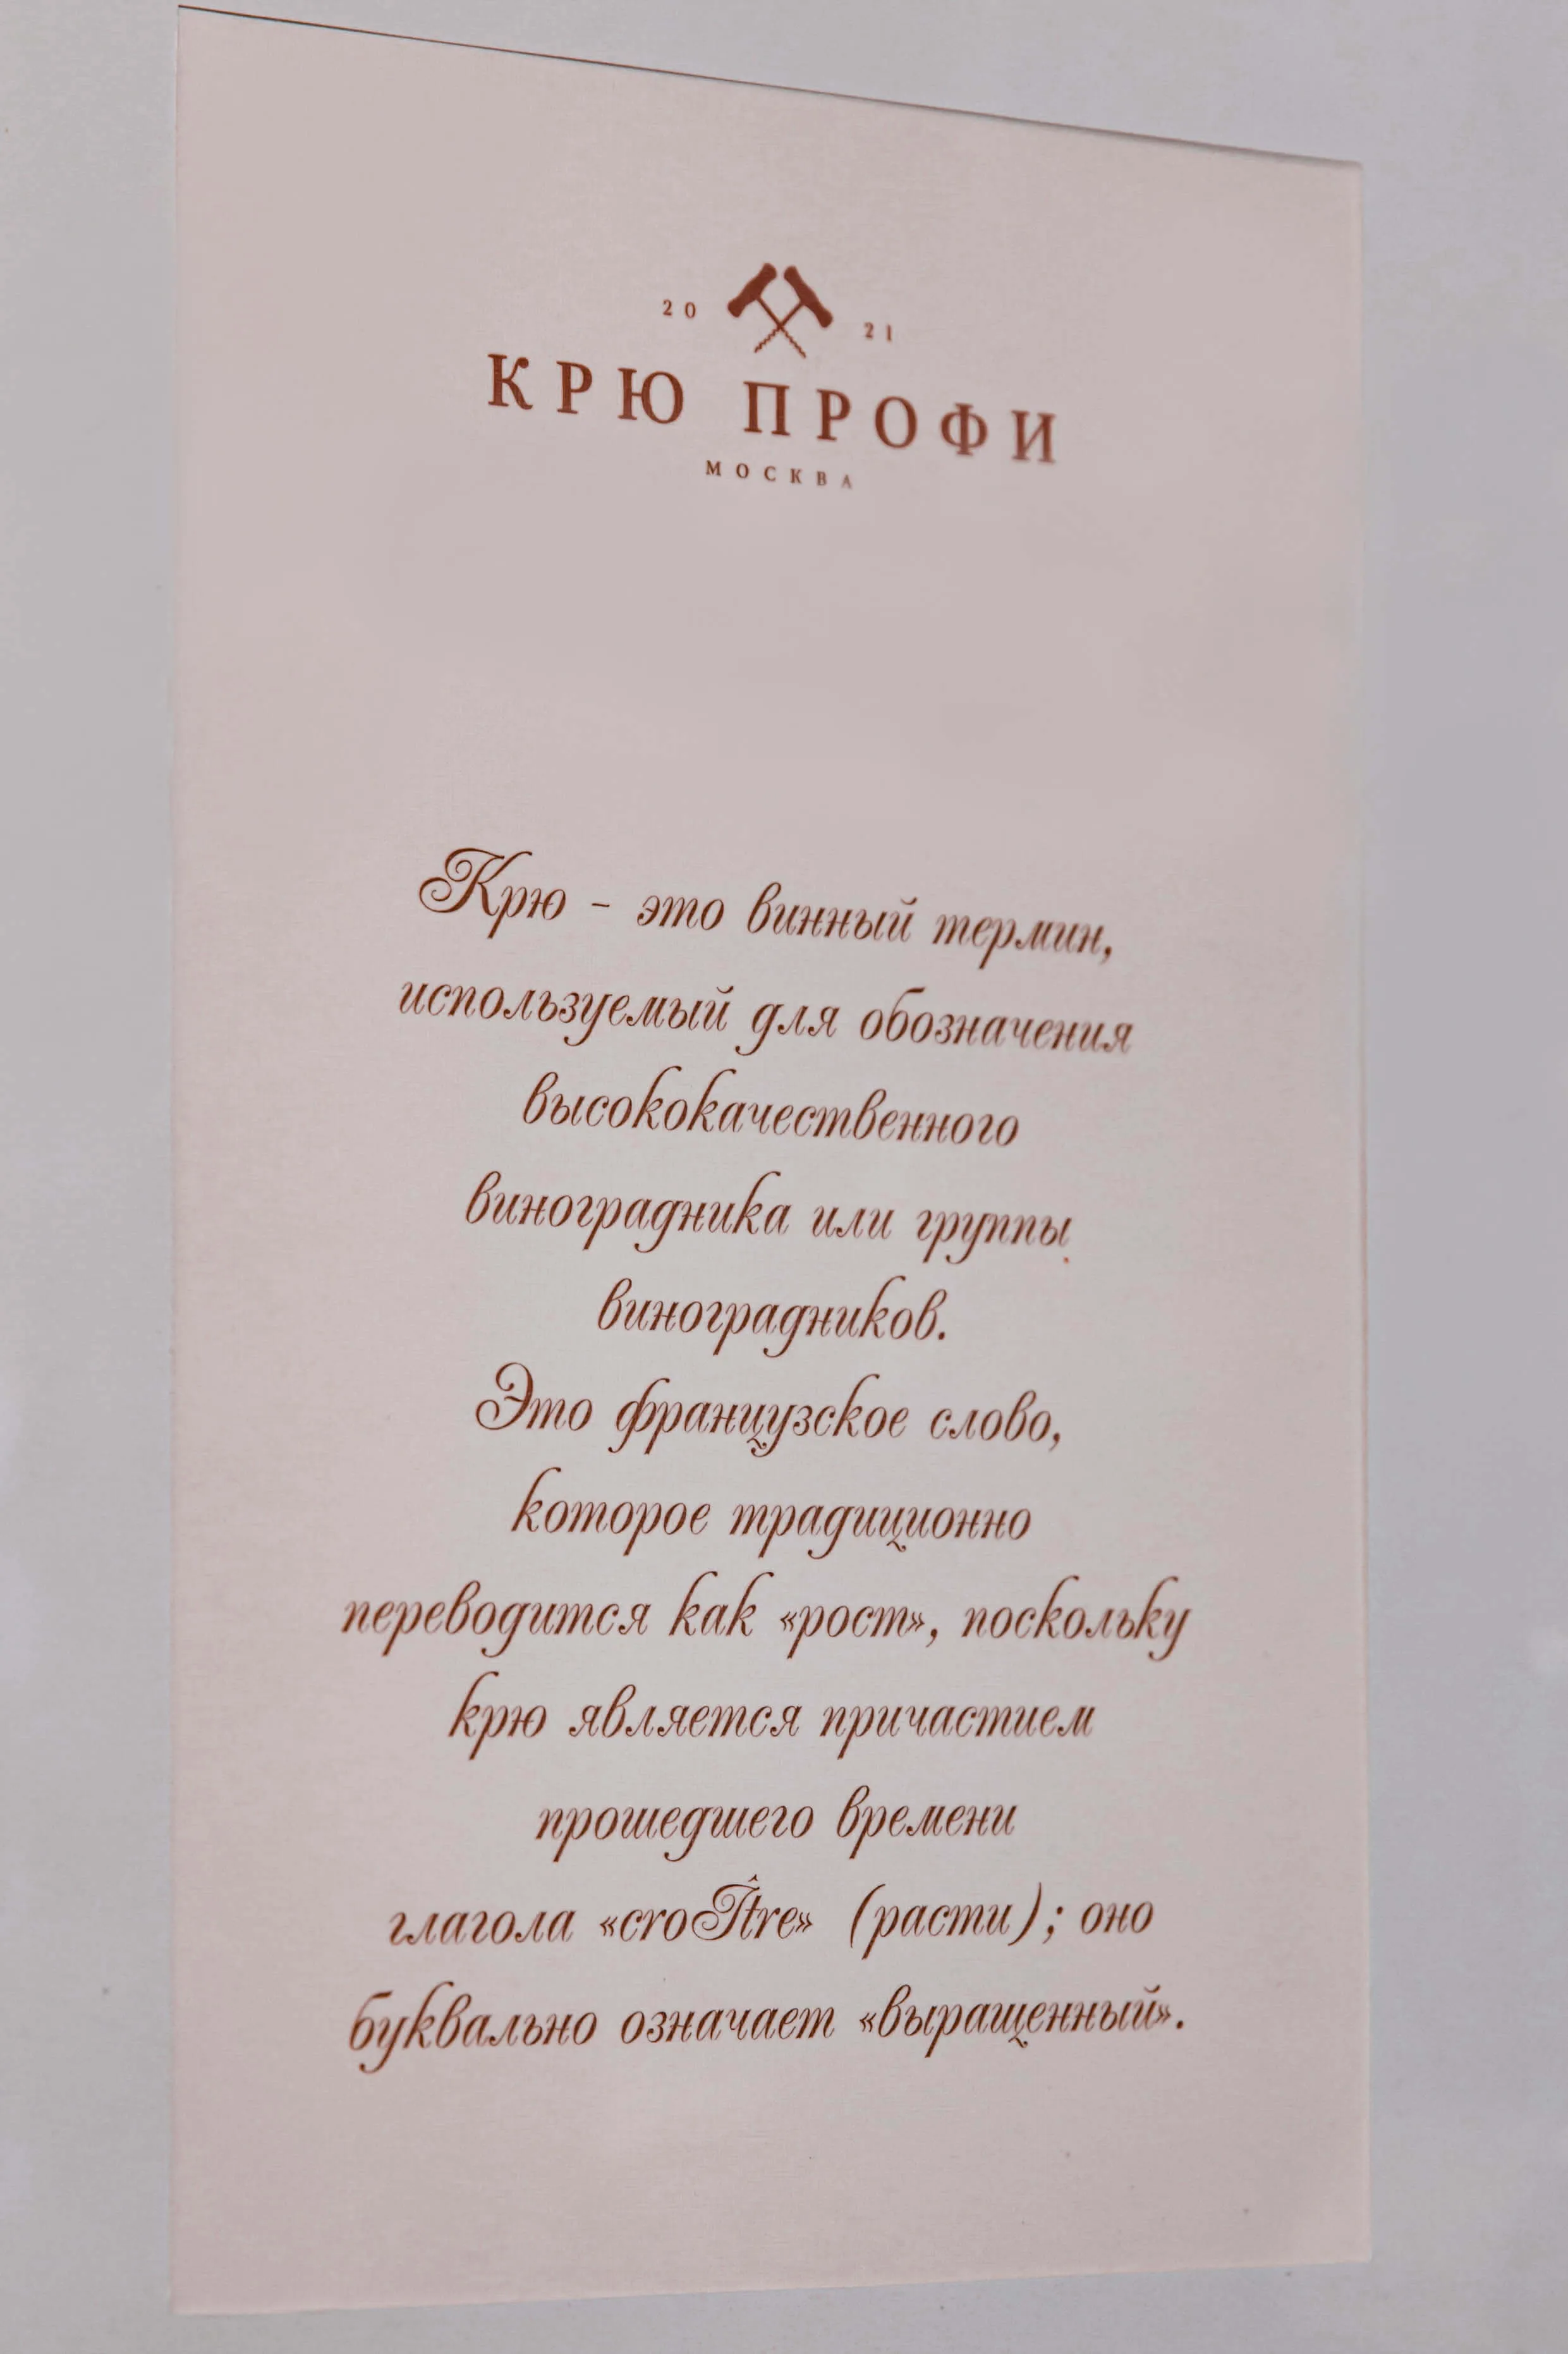 20 21
КРЮ ПРОФИ
МОСКВА
Крю - это винный термин,
используемый для обозначения
высококачественного
виноградника или группы
виноградников.
Это французское слово,
которое традиционно
переводится как «рост», поскольку
крю является причастием
прошедшего времени
глагола «croÎtre» (расти); оно
буквально означает «выращенный».